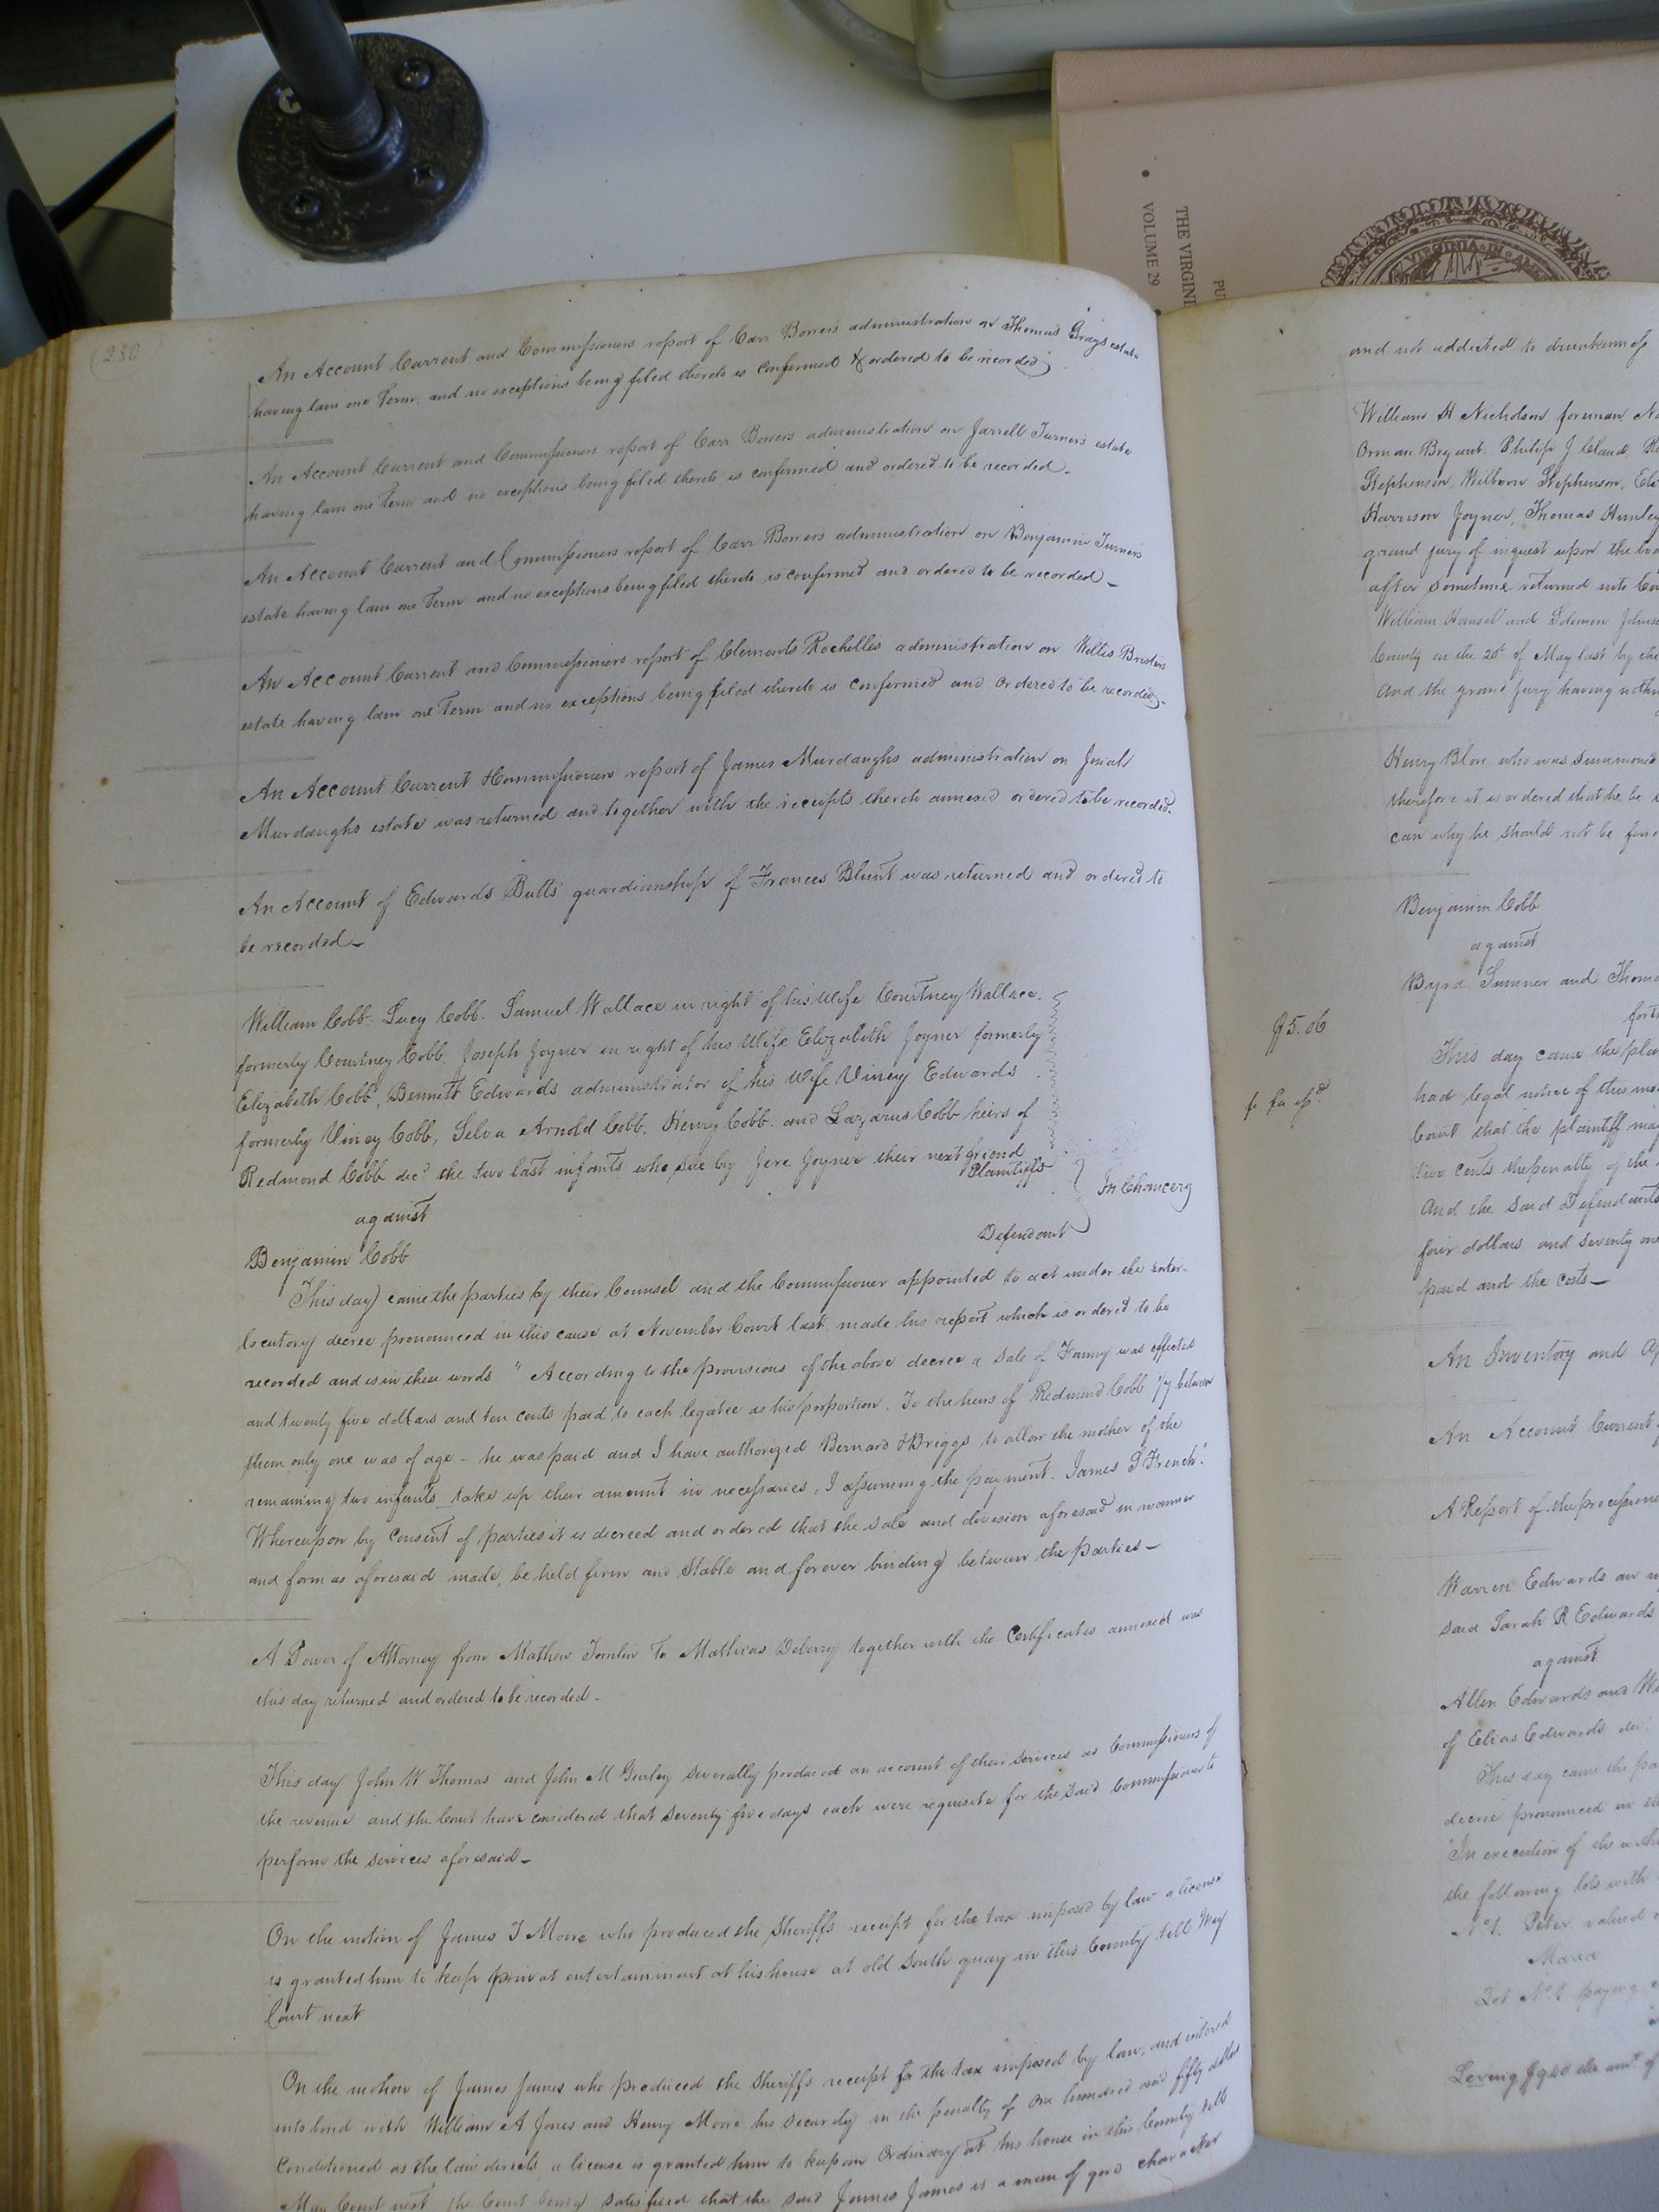 (280
An Account Current and Commissioners report of Carr Bowers administration on Thomas Grays estate
having lain one Term and no exceptions being filed thereto is confirmed & ordered to be recorded
An Account Current and Commissioners report of Carr Bowers administration on Jarrell Turners estate
having lain one Term and no exceptions being filed thereto is confirmed and ordered to be recorded
An Account Current and Commissioners report of Carr Bowers administration on Benjamin Turners
estate having lain one Term and no exceptions being filed thereto is confirmed and ordered to be recorded
An Account Current and Commissioners report of Clements Rochelles administration on Willis Bristers
estate having lain one Term and no exceptions being filed thereto is confirmed and ordered to be recorded
An Account Current & Commissioners report of James Murdaughs administration on Josiah
Murdaughs estate was returned and together with the receipts thereto annexed ordered to be recorded
An Account of Edwards Butts guardianship of Frances Blunt was returned and ordered to
be recorded
William Cobb. Lucy Cobb. Samuel Wallace in right of his wife Courtney Wallace.
formerly Courtney Cobb. Joseph Joyner in right of his wife Elizabeth Joyner formerly
Elizabeth Cobb, Bennett Edwards administrator of his wife Viney Edwards
formerly Viney Cobb, Selva Arnold Cobb. Henry Cobb. and Lazarus Cobb heirs of
Redmond Cobb decd. the two last infants who sue by Jere Joyner their next friend
Plaintiffs
In Chancery
against
Defendant
Benjamin Cobb
This day came the parties by their Counsel and the Commissioner appointed to act under the inter-
locutory decree pronounced in this cause at November Court last, made his report which is ordered to be
recorded and is in these words " According to the provisions of the above decree a sale of Fanny was effected
and twenty five dollars and ten cents paid to each legatee as his proportion. To the heirs of Redmond Cobb 1/7 between
them only one was of age - he was paid and I have authorized Bernard & Briggs to allow the mother of the
remaining two infants take up their amount in necessaries, I assuming the payment. James S French".
Whereupon by consent of parties it is decreed and ordered that the sale and division aforesaid in manner
and form as aforesaid made, be held firm and Stable and forever binding between the parties
A Power of Attorney from Mathew Tomlin to Mathias Deberry together with the Certificates annexed was
this day returned and ordered to be recorded
This day John W Thomas and John M Gurley severally produced an account of their services as Commissioners of
the revenue and the Court have considered that seventy five days each were requisite for the said Commissioner to
perform the services aforesaid
On the motion of James T Moore who produced the Sheriffs receipt for the tax imposed by law a license
is granted him to keep privat entertainment at his house at old South quay in this County till May
Court next
On the motion of James James who produced the Sheriffs receipt for the tax imposed by law, and entered
into bond with William A Jones and Henry Moore his security in the penalty of one hundred and fifty dollars
Conditioned as the law directs, a license is granted him to keep an Ordinary at his house in this County till
May Court next the Court being satisfied that the said James James is a man of good character
and not addicted to drunkenness
William H Nicholson foreman
Orman Bryant. Philip J Claud
Stephenson, Wilborn Stephenson,
Harrison Joyner, Thomas
grand jury of inquest upon the
after sometime returned into
William Hansel and Solomon
County on the 20th of May last by the
And the grand jury having
Henry Blow who was summoned
therefore it is ordered that he be
can why he should not be
Benjamin Cobb
against
Byrd Sumner and
$5.06
This day came the
had legal notice of this
Court that the plaintiff may
two cents the penalty of the
And the said Defendants
four dollars and seventy one
paid and the costs
An Inventory and
An Account Current
A Report of the
Warren Edwards an
said Sarah R Edwards
against
Allen Edwards and
of Elias Edwards dec
This day came the
decree pronounced in
"In execution of the
the following lots with
No 1. Peter valued
Lot No 1 paying
THE VIRGINI
VOLUME 29
PU
VIRGINIA